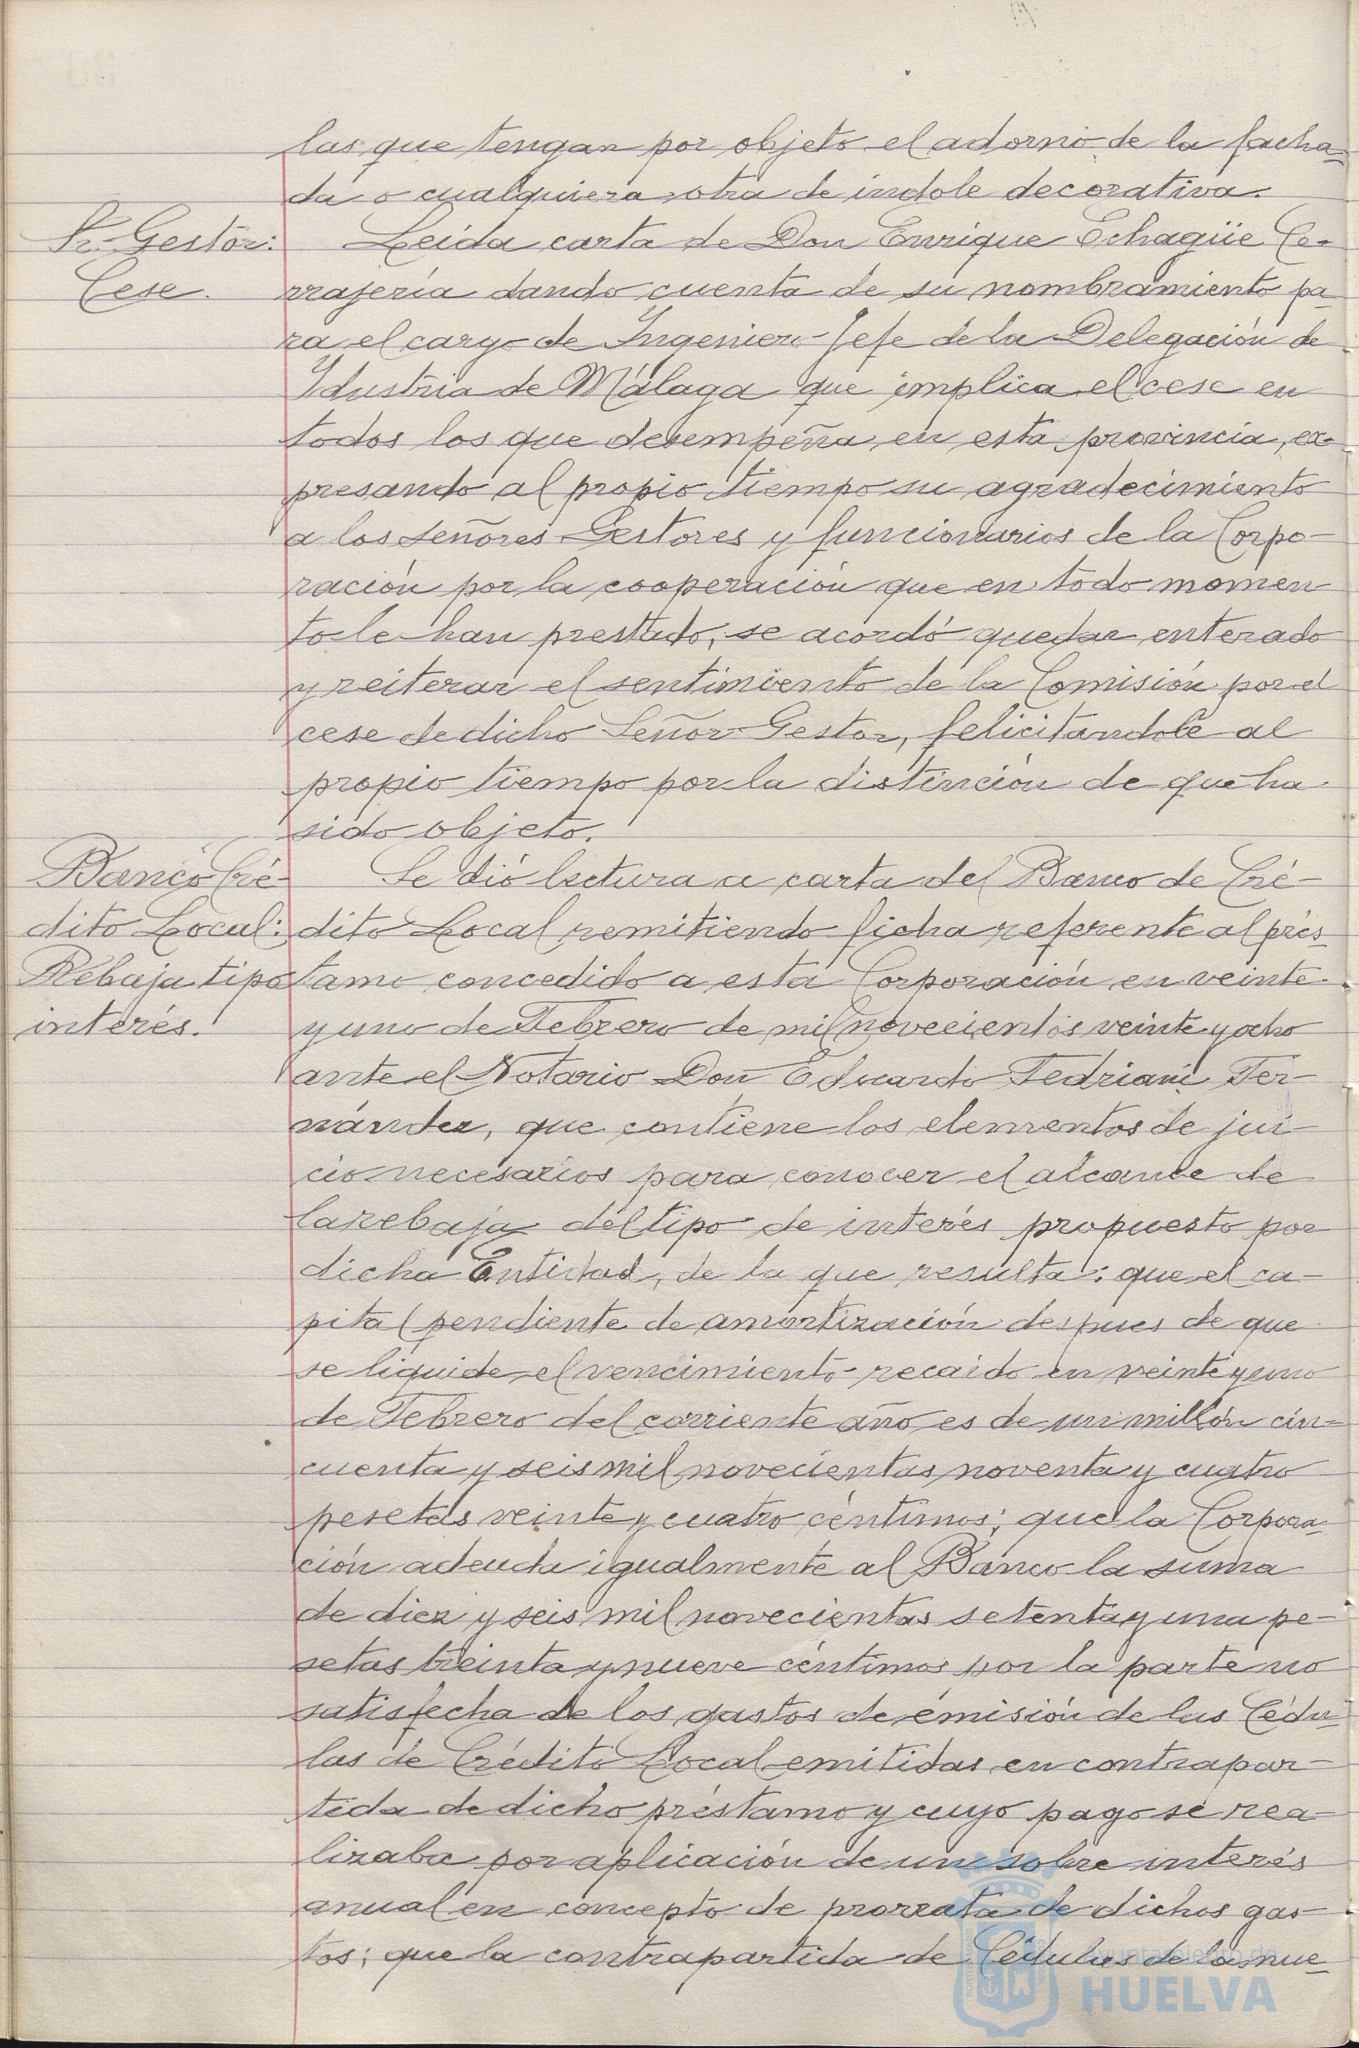 las que tengan por objeto el adorno de la facha-
da o cualquiera otra de indole decorativa.
Sr. Gestor:
Cese.
Leida carta de Don Enrique Echagüe Ce-
rrajería dando cuenta de su nombramiento pa-
ra el cargo de Ingeniero-Jefe de la Delegación de
Idustria de Málaga que implica el cese en
todos los que desempeña en esta provincia, ex-
presando al propio tiempo su agradecimiento
a los señores Gestores y funcionarios de la Corpo-
ración por la cooperación que en todo momen-
to le han prestado, se acordó quedar enterado
y reiterar el sentimiento de la Comisión por el
cese de dicho Señor Gestor, felicitandole al
propio tiempo por la distinción de que ha
sido objeto.
Banco Cré-
dito Local:
Rebaja tipo
interés.
Se dió lectura a carta del Banco de Cré-
dito Local remitiendo ficha referente al prés-
tamo concedido a esta Corporación en veinte
y uno de Febrero de mil novecientos veinte y ocho
ante el Notario Don Eduardo Fedriani Fer-
nández, que contiene los elementos de jui-
cio necesarios para conocer el alcance de
la rebaja del tipo de interés propuesto por
dicha Entidad, de la que resulta: que el ca-
pital pendiente de amortización despues de que
se liquide el vencimiento recaido en veinte y uno
de Febrero del corriente año es de un millón cin-
cuenta y seis mil novecientas noventa y cuatro
pesetas veinte y cuatro céntimos; que la Corpora-
ción adeuda igualmente al Banco la suma
de diez y seis mil novecientas setenta y una pe-
setas treinta y nueve céntimos por la parte no
satisfecha de los gastos de emisión de las Cédu-
las de Crédito Local emitidas en contrapar-
tida de dicho préstamo y cuyo pago se rea-
lizaba por aplicación de un sobre interés
anual en concepto de prorrata de dichos gas-
tos; que la contrapartida de Cédulas de la nue-
Ayuntamiento de
HUELVA